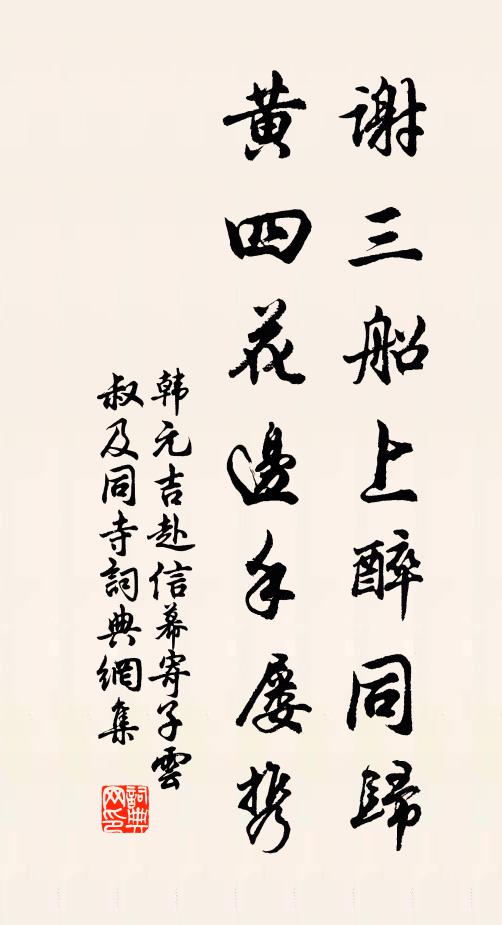 谢三船上醉同歸
黄四花邊手屡携
韩元吉赴信幕寄子雲
叔及同寺詞典網集
詞典网印